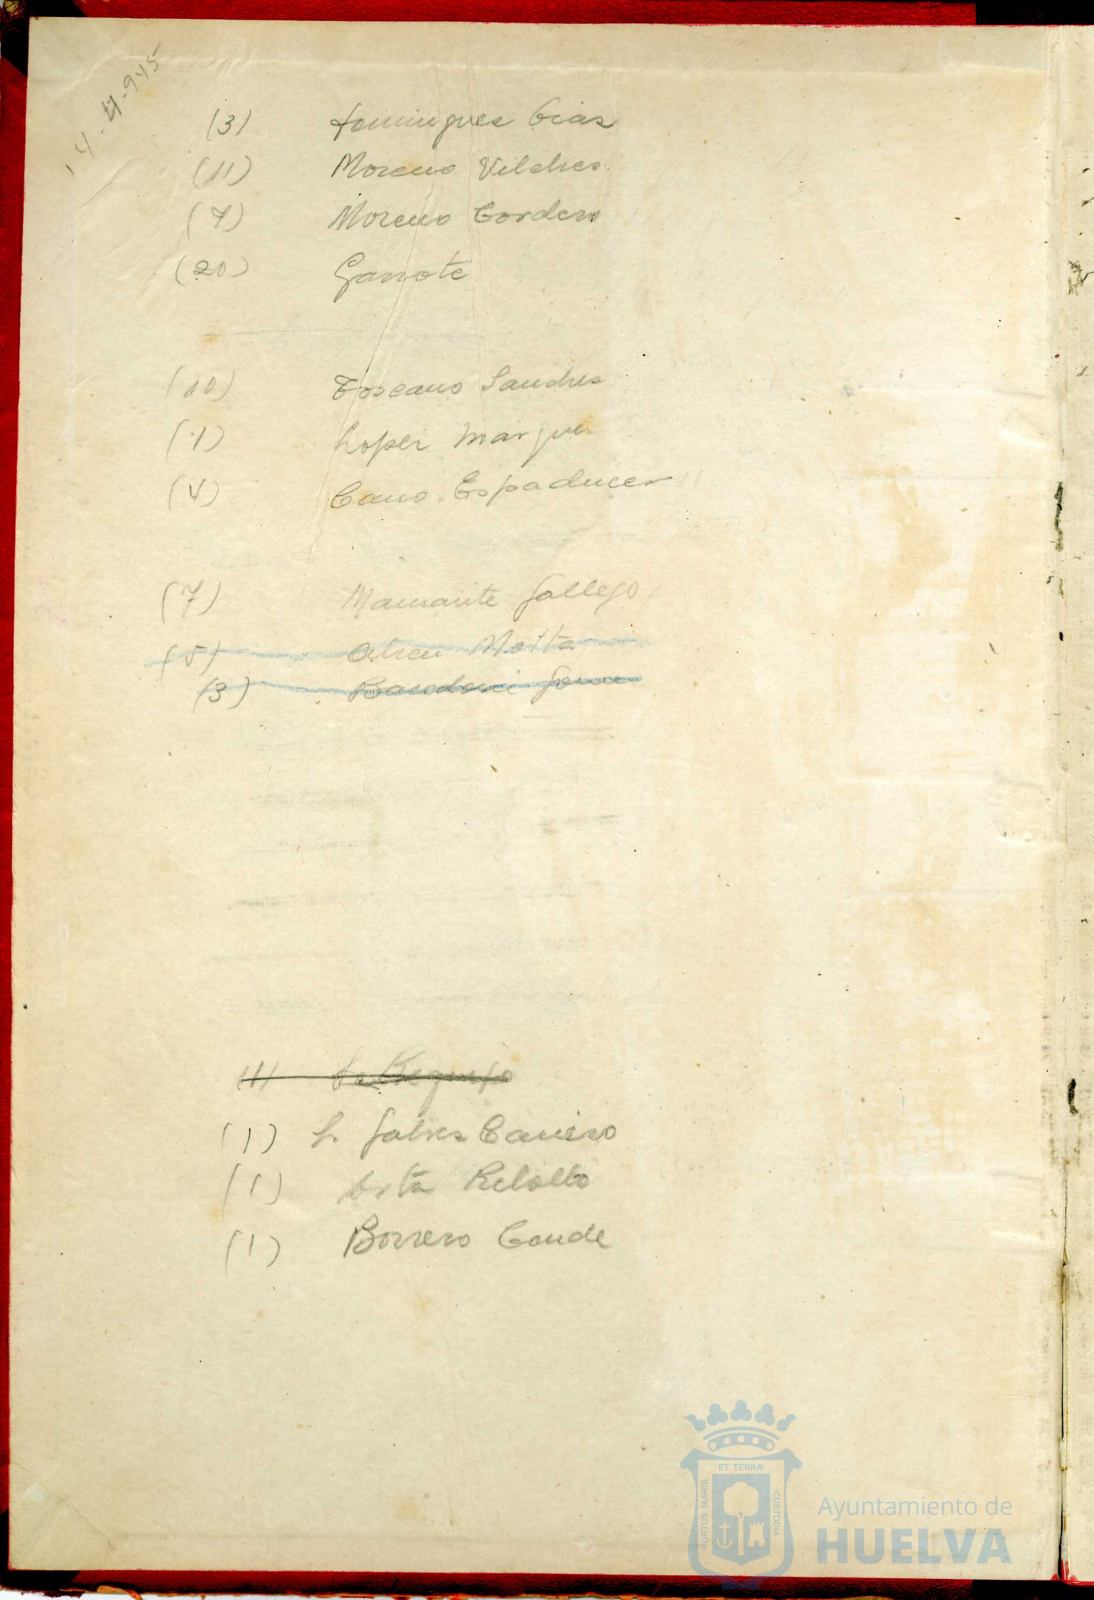 14-4-945
(3) Domingues Cias
(11) Moreno Vilches
(7) Moreno Cordero
(20) Garrote
(10) Toscano Sanches
(1) Lopez Marques
(4) Cano Espaducer
(7) Mamante Gallego
(5) Abreu Motta
(3)
(1)
(1) L. Galvez Caniero
(1) Orta Rebollo
(1) Borrero Conde
PORTUS MARIS ET TERRÆ CUSTODIA
Ayuntamiento de
HUELVA